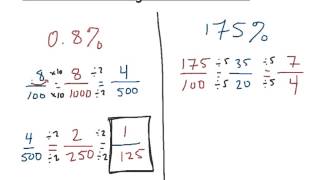 0.8%
.8/100 ×10/×10 = 8/1000 ÷2/÷2 = 4/500
4/500 ÷2/÷2 = 2/250 ÷2/÷2 = 1/125
175%
175/100 ÷5/÷5 = 35/20 ÷5/÷5 = 7/4